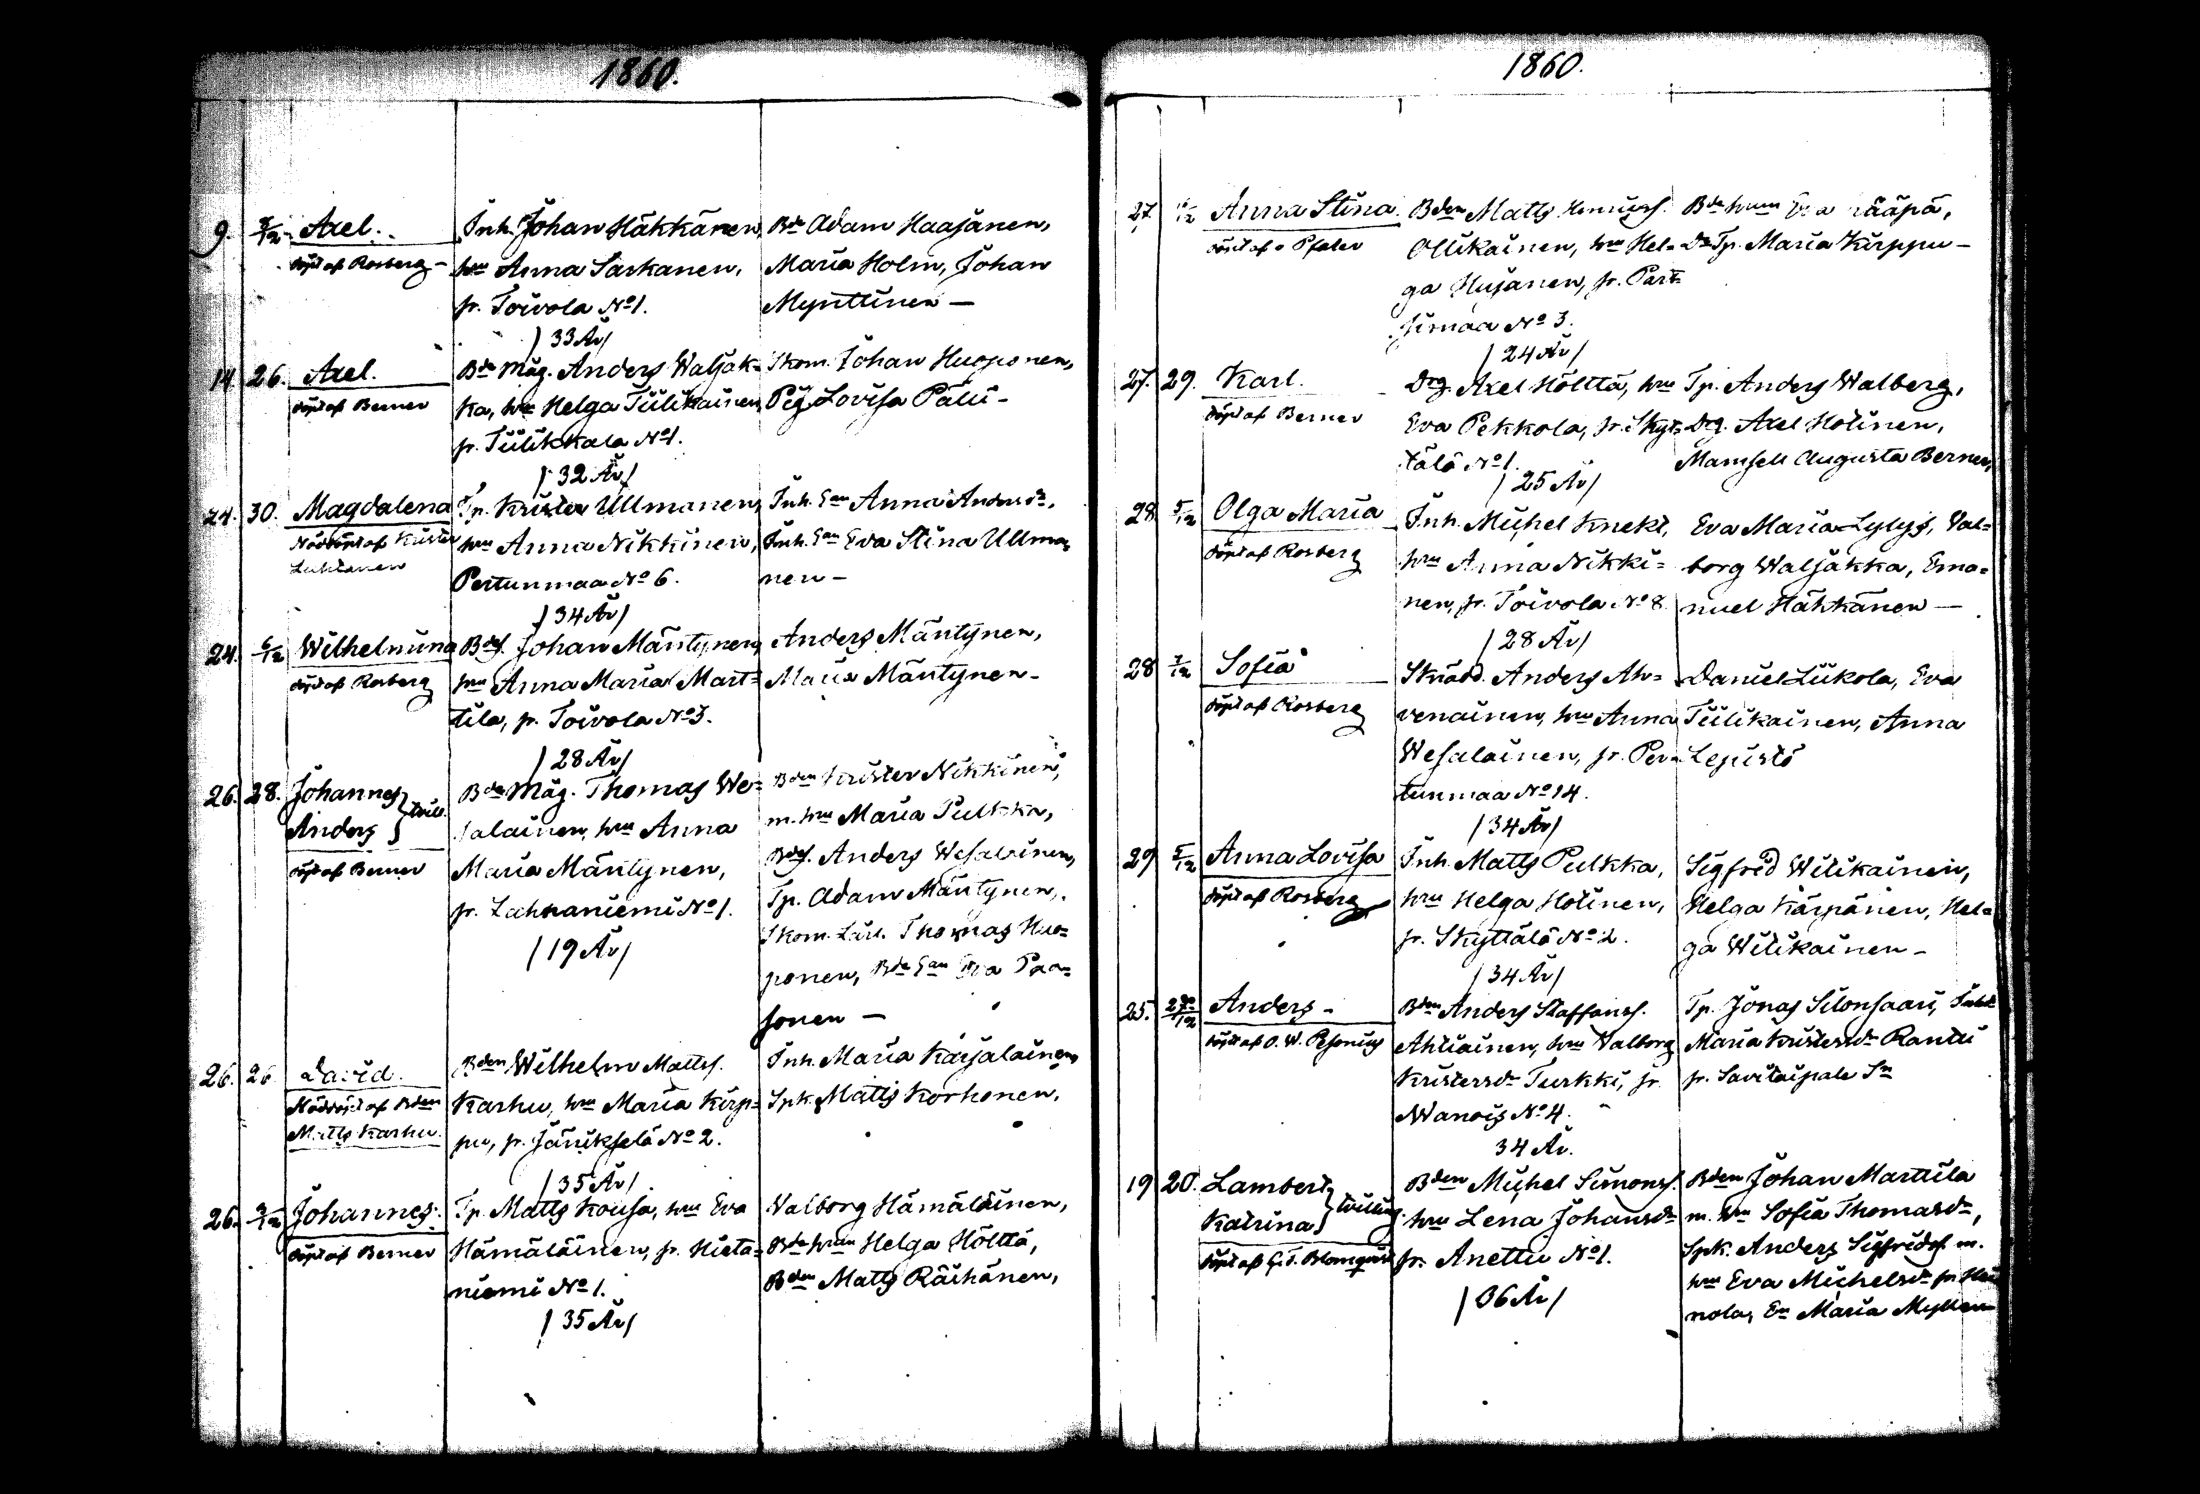 1860.
9. 9/12 Axel.
döpt af Rosberg
Inh. Johan Häkkänen,
hru Anna Sarkanen,
fr. Toivola No 1.
/33 År/
Bde Adam Haajanen,
Maria Holm, Johan
Mynttinen —
14. 26. Axel.
döpt af Berner
Bde Måg. Anders Waljak-
ka, hru Helga Tiilikainen,
fr. Tiilikkala No 1.
/32 År/
Skom. Johan Huoponen,
Pig. Lovisa Pälli -
24. 30. Magdalena
Nöddöpt af Krister
Luhtanen
Tp. Krister Ullmanen,
hru Anna Nikkinen,
Pertunmaa No 6.
/34 År/
Inh. Ean Anna Andersdr,
Inh. Ean Eva Stina Ullma-
nen —
24. 6/12 Wilhelmina
döpt af Rosberg
Bdes. Johan Mäntynen,
hru Anna Maria Mart-
tila, fr. Toivola No 3.
/28 År/
Anders Mäntynen,
Maria Mäntynen -
26. 28. Johannes
Anders } tvill.
döpt af Berner
Bde Måg. Thomas We-
salainen, hru Anna
Maria Mäntynen,
fr. Lahnaniemi No 1.
/19 År/
Bden Krister Nikkinen,
m. hru Maria Pulkka,
Bdes. Anders Wesalainen,
Tp. Adam Mäntynen,
Skom. Lärl. Thomas Huo-
ponen, Bde Ean Eva Paa-
sonen —
26. 26 David.
Nöddöpt af Bden
Matts Karhu.
Bden Wilhelm Mattss.
Karhu, hru Maria Kirp-
pu, fr. Joutsjärvi No 2.
/35 År/
Inh. Maria Karjalainen,
Spk. Matts Korhonen,
26. 9/12 Johannes.
döpt af Berner
Tp. Matts Kousa, hru Eva
Hämäläinen, fr. Hieta-
niemi No 1.
/35 År/
Valborg Hämäläinen,
Bde hrun Helga Hölttä,
Bden Matts Räihänen,
1860.
27. Anna Stina.
döpt af Pfaler
Bden Matts Henrikss.
Ollikainen, hru Hel-
ga Husanen, fr. Part-
simaa No 3.
/24 År/
Bde hrun Eva Rääpä,
Do Tp. Maria Kirppu -
27. 29. Karl.
döpt af Berner
Drg. Axel Hölttä, hru
Eva Pekkola, fr. Skyt-
tälä No 1.
/25 År/
Tp. Anders Walberg,
Drg. Axel Hotinen,
Mamsell Augusta Berner,
28. 5/12 Olga Maria
döpt af Rosberg
Inh. Michel Knekt,
hru Anna Nikki-
nen, fr. Toivola No 8.
/28 År/
Eva Maria Lylys, Val-
borg Waljakka, Ema-
nuel Häkkänen —
28 7/12 Sofia
döpt af Rosberg
Skrädd. Anders Ah-
venainen, hru Anna
Wesalainen, fr. Per-
tunmaa No 14.
/34 År/
Daniel Liikola, Eva
Tiilikainen, Anna
Lepistö
29 5/12 Anna Lovisa
döpt af Rosberg
Inh. Matts Pulkka,
hru Helga Hotinen,
fr. Skyttälä No 2.
/34 År/
Sigfrid Wilikainen,
Helga Kärpänen, Hel-
ga Wilikainen -
25. 27/12 Anders -
döpt af O. W. Pesonius
Bden Anders Staffanss.
Ahtiainen, hru Valborg
Kristersdr Turkki, fr.
Wanois No 4.
34 År.
Tp. Jonas Silonsaari,
Maria Kristersdr Rantti
fr. Savitaipale Sn
19 20. Lambert
Katrina } tvilling.
döpt af G. T. Blomqvist
Bden Michel Simonss.
hru Lena Johansdr
fr. Anettu No 1.
/36 År/
Bden Johan Marttila
m. hru Sofia Thomasdr,
Spk. Anders Sigfridss. m.
hru Eva Michelsdr fr. Hei-
nola, En Maria Myllen